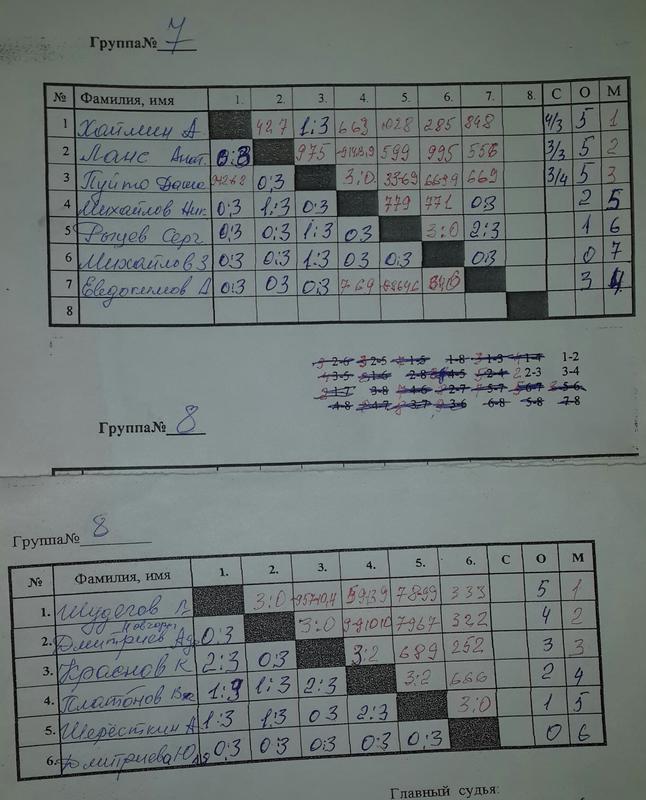 Группа№ 7
№ Фамилия, имя 1. 2. 3. 4. 5. 6. 7. 8. С О М
1 Хаймин А. 427 1:3 669 285 848 4/3 5 1
2 Ланс Анат. 0:3 975 599 995 556 3/3 5 2
3 Пуйто Даша 0:3 3:0 3369 6699 669 3/4 5 3
4 Михайлов Ник. 0:3 1:3 0:3 779 771 0:3 2 5
5 Рыцев Серг 0:3 0:3 1:3 03 3:0 2:3 1 6
6 Михайлов З 0:3 0:3 1:3 03 0:3 0:3 0 7
7 Евдокимов Д 0:3 03 0:3 769 3 4
8
2-6 2-5 1-5 1-8 1-3 1-4 1-2
3-5 1-6 2-8 4-5 2-4 2-3 3-4
1-7 3-8 4-6 2-7 5-7 6-7 5-6
4-8 4-7 3-7 3-6 6-8 5-8 7-8
Группа№ 8
Группа№ 8
№ Фамилия, имя 1. 2. 3. 4. 5. 6. С О М
1. 3:0 333 5 1
2. Дмитриев 0:3 3:0 7967 322 4 2
3. Краснов К 2:3 0:3 3:2 689 252 3 3
4. Платонов 1:3 1:3 2:3 3:2 666 2 4
5. Шерёсткин А 1:3 1:3 03 2:3 3:0 1 5
6. Дмитриева Ю 0:3 0:3 0:3 0:3 0:3 0 6
Главный судья: